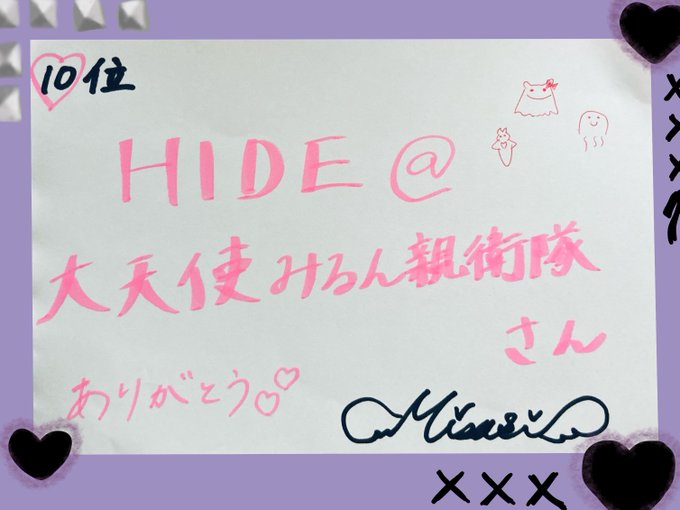 10位
HIDE@
大天使みるん親衛隊
さん
ありがとう
Misaki
xxx